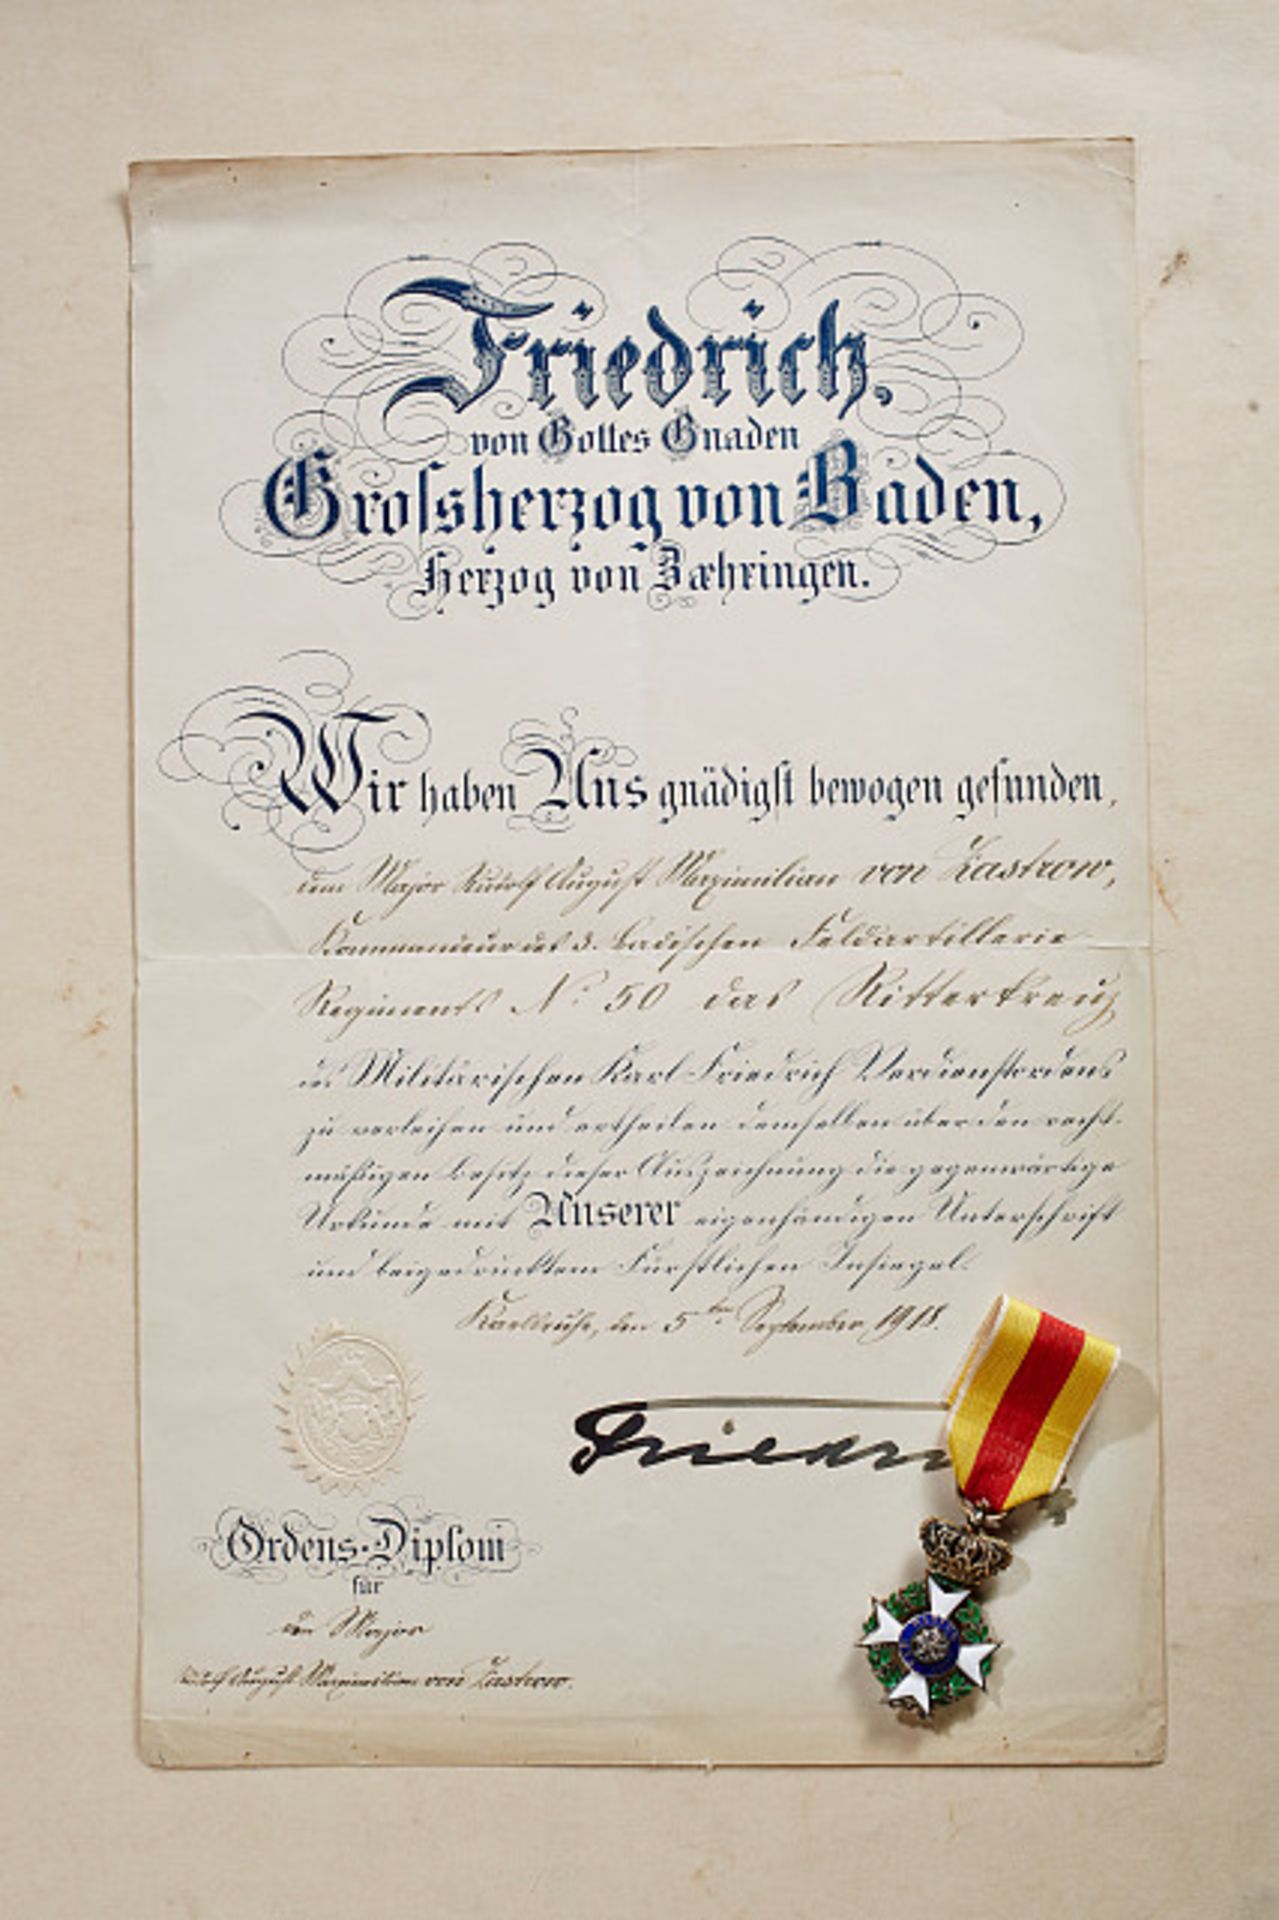 Friedrich,
von Gottes Gnaden
Grofsherzog von Baden,
Herzog von Zæhringen.
Wir haben Uns gnädigst bewogen gefunden,
dem Major Rudolf August Maximilian von Zastrow,
Kommandeur des 3. Badischen Feldartillerie
Regiments No. 50 das Ritterkreuz
des Militärischen Karl-Friedrich Verdienstordens
zu verleihen und ertheilen demselben über den recht-
mäßigen Besitz dieser Auszeichnung die gegenwärtige
Urkunde mit Unserer eigenhändigen Unterschrift
und beigedrucktem Fürstlichen Insiegel.
Karlsruhe, den 5ten September 1918.
Friedri
Ordens-Diplom
für
den Major
Rudolf August Maximilian von Zastrow.